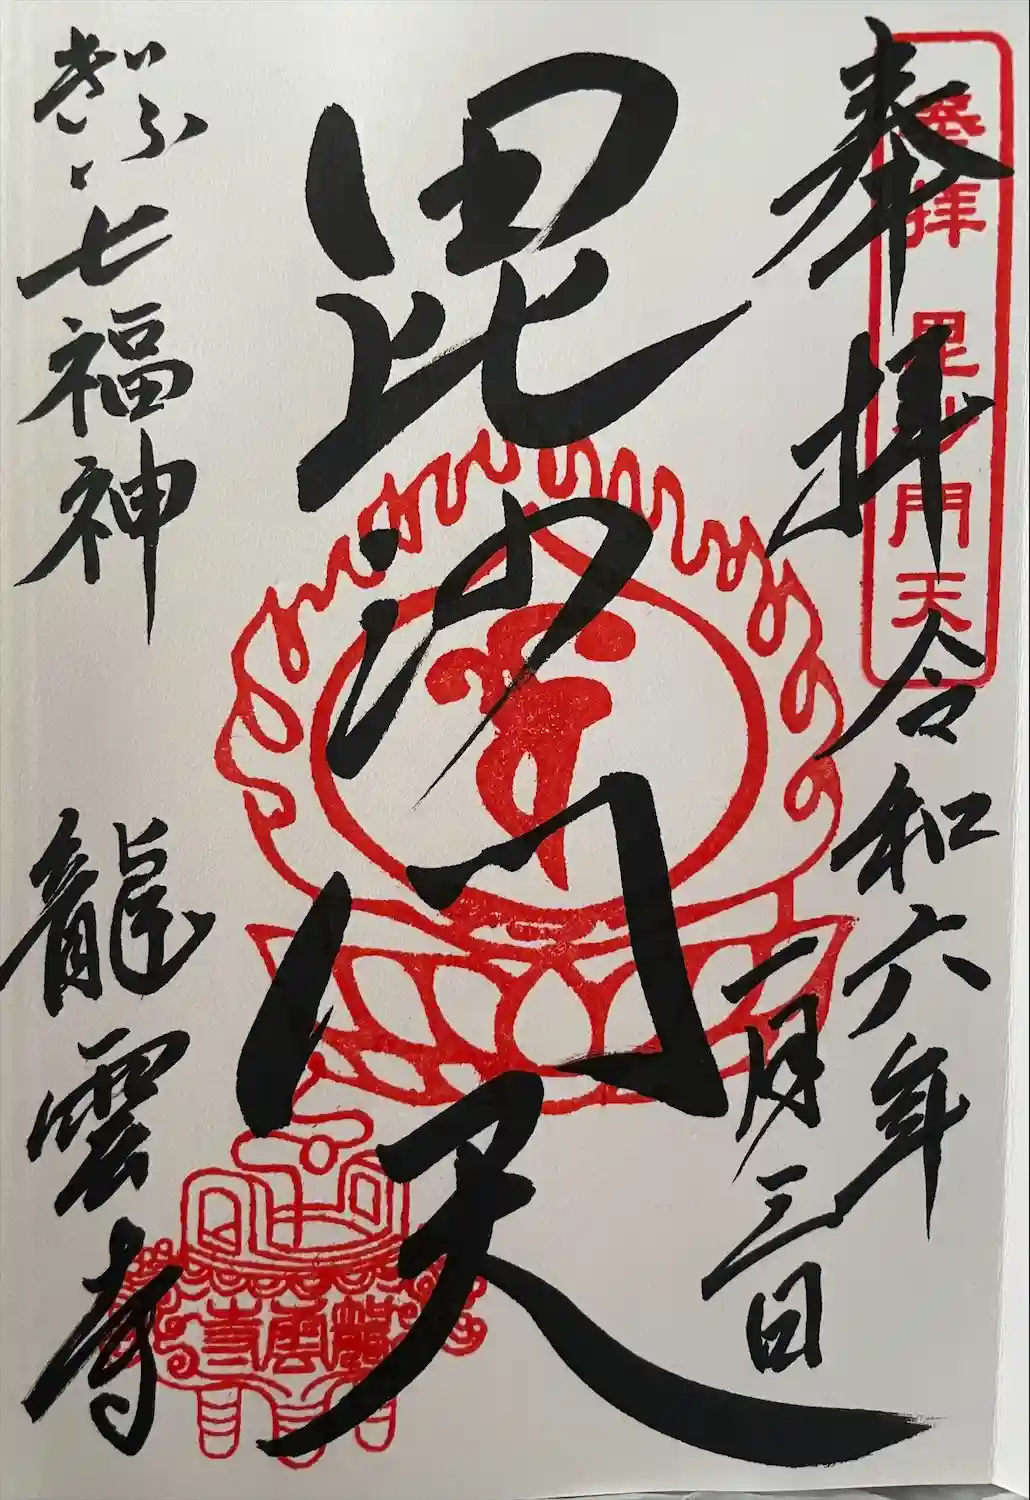 奉拝
令和六年
二月三日
奉拝 毘沙門天
毘沙門天
ぎふ七福神
龍雲寺
龍雲寺